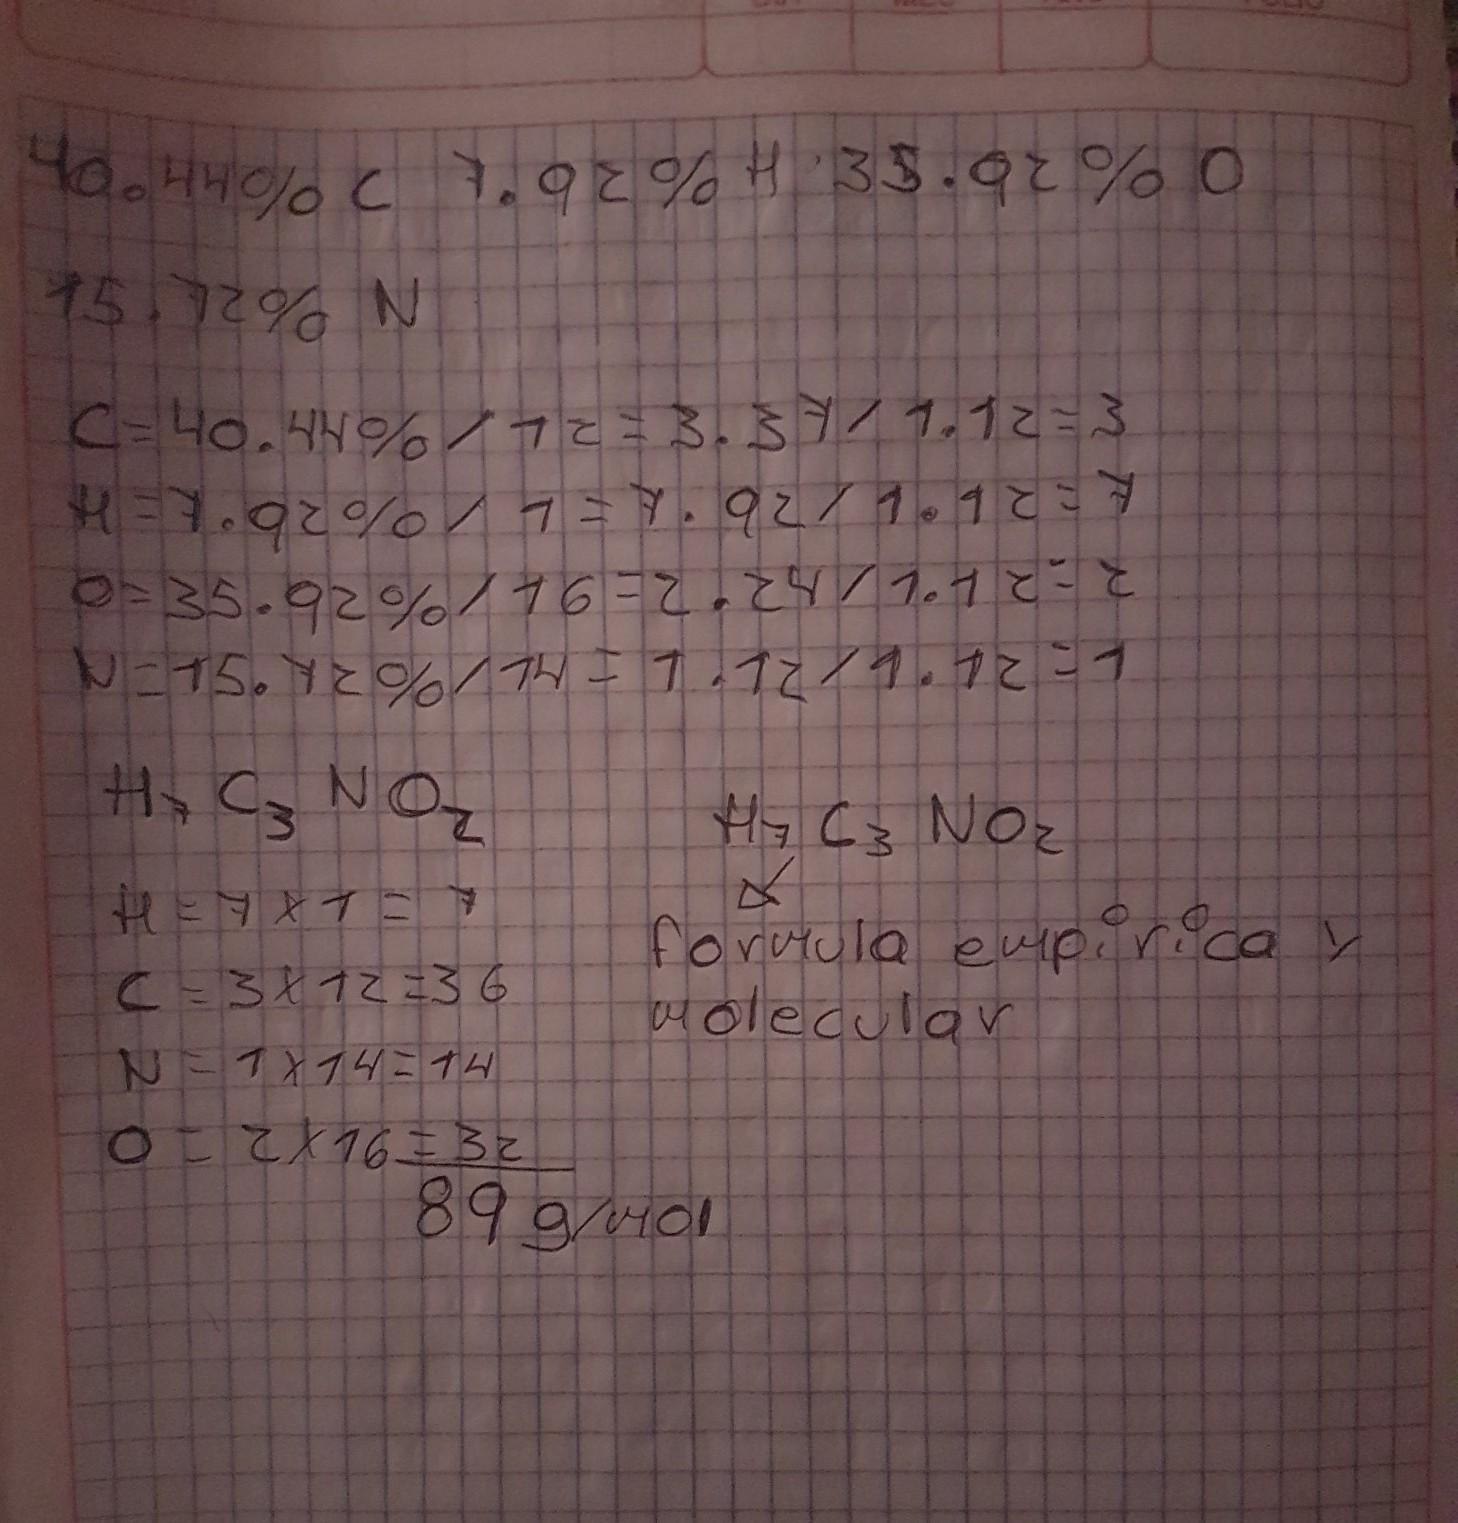 40.44% C 7.92% H 35.92% O
15.72% N
C=40.44%/12=3.37/1.12=3
H=7.92%/1=7.92/1.12=7
O=35.92%/16=2.24/1.12=2
N=15.72%/14=1.12/1.12=1
H₇ C₃ NO₂
H=7x1=7
C=3x12=36
N=1x14=14
O=2x16=32
89 g/mol
H₇ C₃ NO₂
formula empirica y
molecular